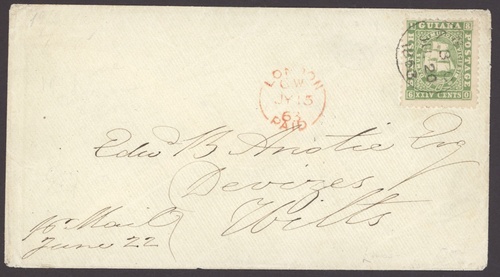 GUIANA
POSTAGE
XXIV CENTS
20
1863
LONDON
JY 13
63
PAID
Edwd B Anstie Esq
Devizes
Wilts
pr Mail
June 22